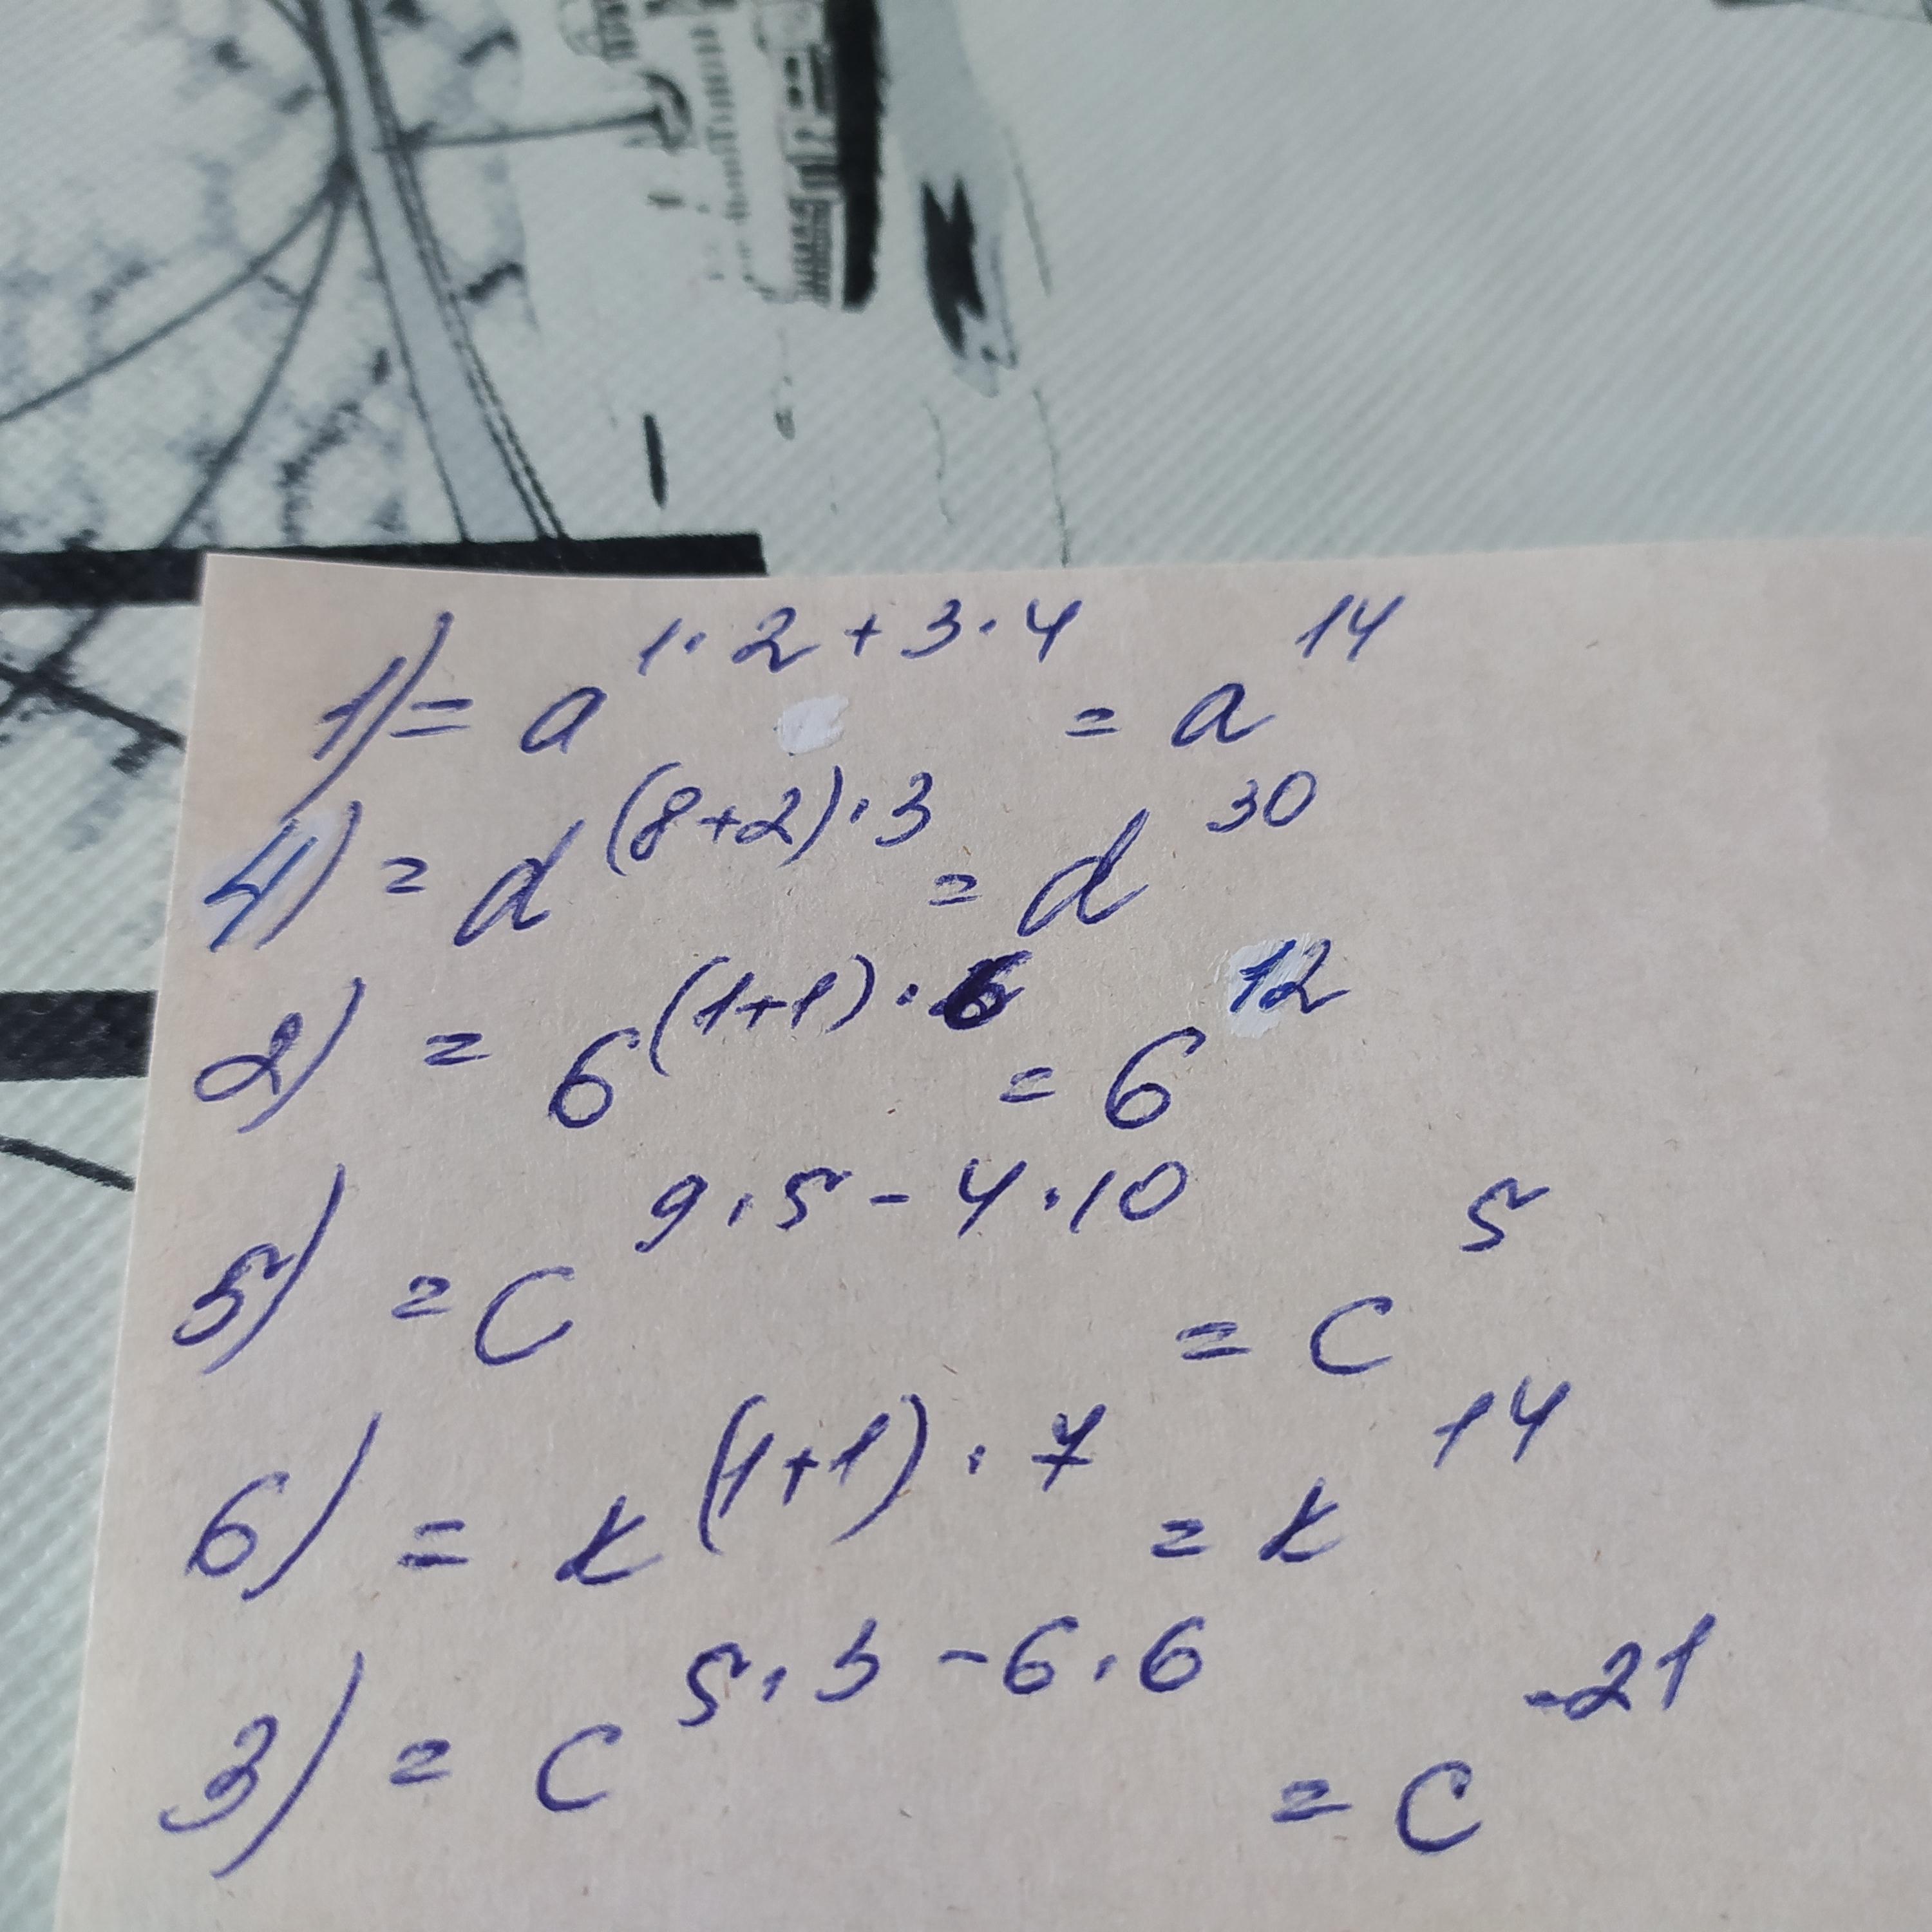 1) = a^{1·2+3·4} = a^{14}
4) = d^{(8+2)·3} = d^{30}
2) = b^{(1+1)·6} = b^{12}
5) = c^{9·5-4·10} = c^{5}
6) = k^{(1+1)·7} = k^{14}
3) = c^{5·3-6·6} = c^{-21}